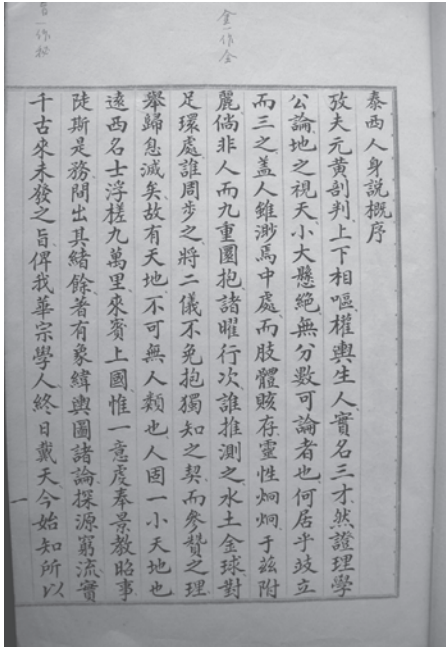 金一作全
吾一作秘
泰西人身説概序
攷夫元黄剖判上下相嘔權輿生人實名三才然證理學
公論地之視天小大懸絶無分數可論者也何居乎歧立
而三之蓋人雖渺焉中處而肢體賅存靈性炯炯于兹附
麗倘非人而九重圜抱諸曜行次誰推測之水土金球對
足環處誰周步之將二儀不免抱獨知之契而參贊之理
舉歸息滅矣故有天地不可無人類也人固一小天地也
遠西名士浮槎九萬里來賓上國惟一意虔奉景教昭事
陡斯是務間出其緒餘著有象緯輿圖諸論探源窮流實
千古來未發之旨俾我華宗學人終日戴天今始知所以
一